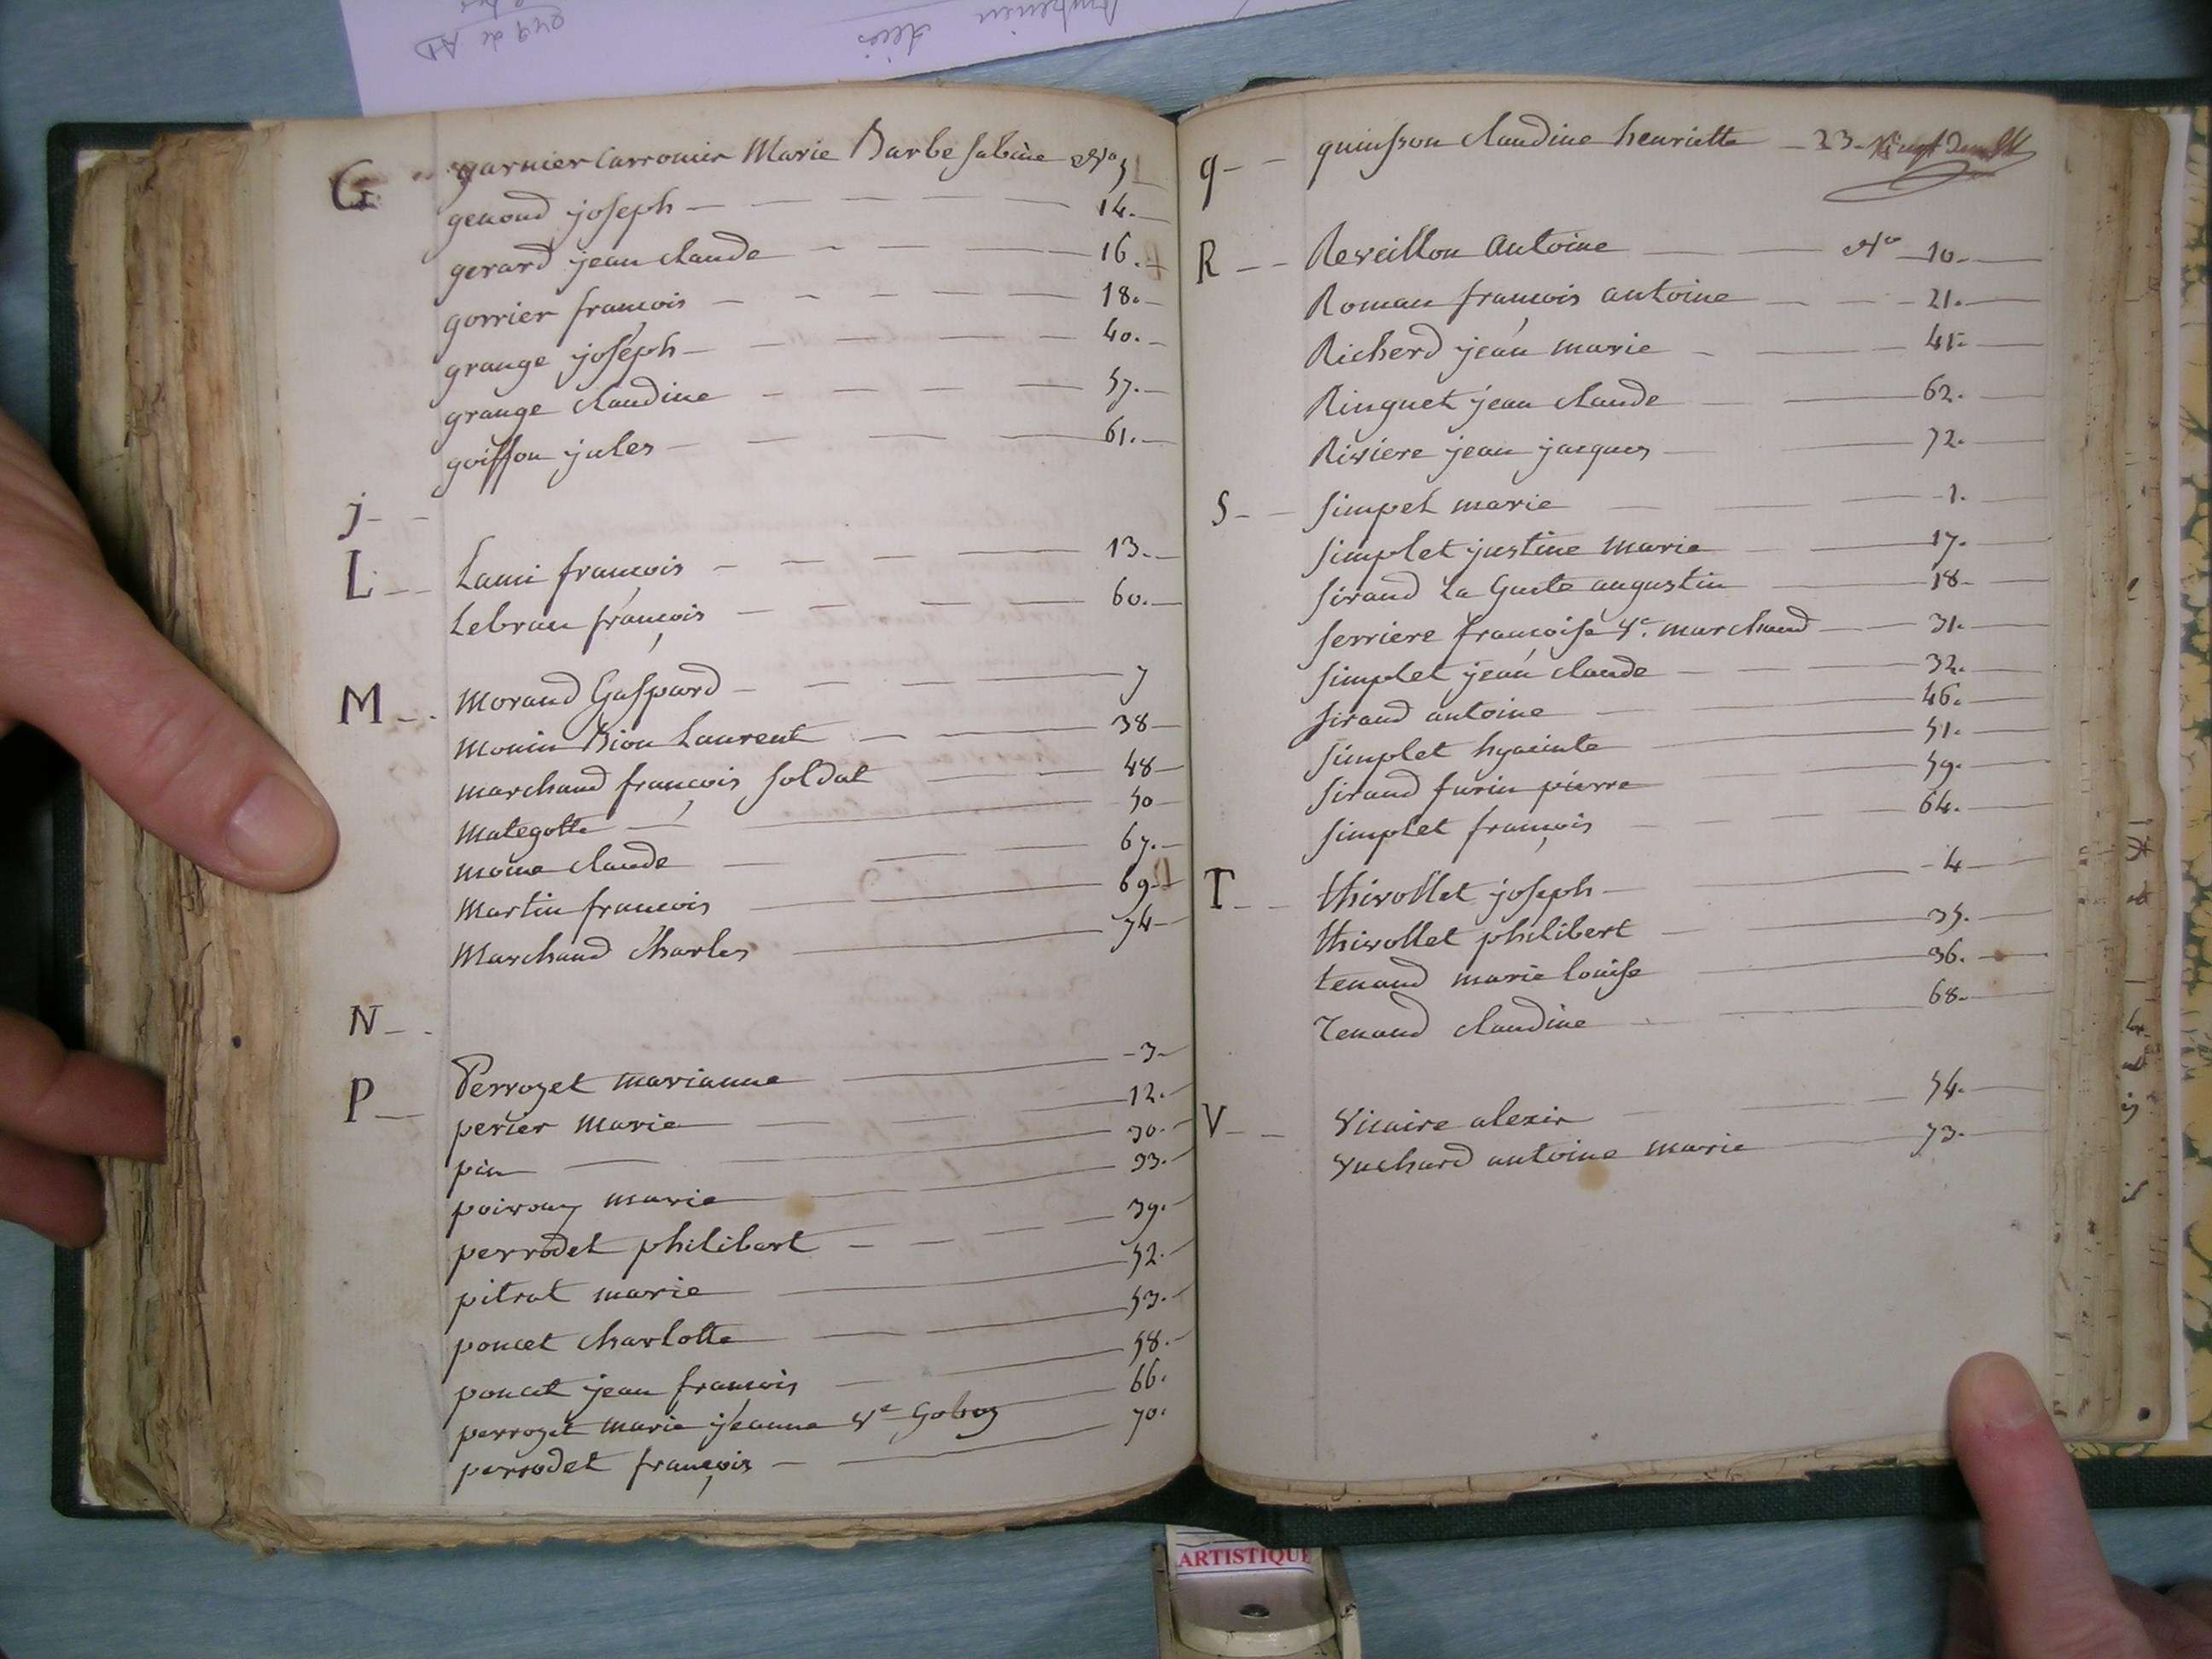 G garnier Carronier Marie Barbe Sabine N.o 5
genoud joseph 14.
gerard jean claude 16.
gorrier françois 18.
grange joséph 40.
grange claudine 57.
goiffon jules 61.
j
L Lami françois 13.
Lebrau françois 60.
M Morand Gaspard 7
Monin Bion Laurent 38
marchand françois soldat 48
Mategotte 50
moine claude 67.
Martin francois 69
Marchand Charles 74
N
P Perrozet marianne 3
perier Marie 12.
pin 30.
poivoug marie 33.
perrodet philibert 39.
pitrat marie 52.
poncet charlotte 53.
poncet jean françois 58.
perrozet marie jeanne Ve Goboz 66.
perrodet françois 70.
q quinsson claudine henriette 23.
R Reveillon Antoine No 10.
Roman françois antoine 21.
Richerd jean marie 45.
Ringuet jean claude 62.
Riviere jean jacques 72.
S simpet marie 1.
simplet justine marie 17.
sirand La Guite augustin 18
serriere françoise Ve. marchand 31.
simplet jean claude 32.
sirand antoine 46.
simplet hyacinte 51.
sirand furin pierre 59.
simplet françois 64.
T thivollet joseph 4
thivollet philibert 35.
tenand marie louise 36.
Tenand claudine 68.
V Vicaire alexis 54.
Vuchard antoine marie 73.
ARTISTIQUE